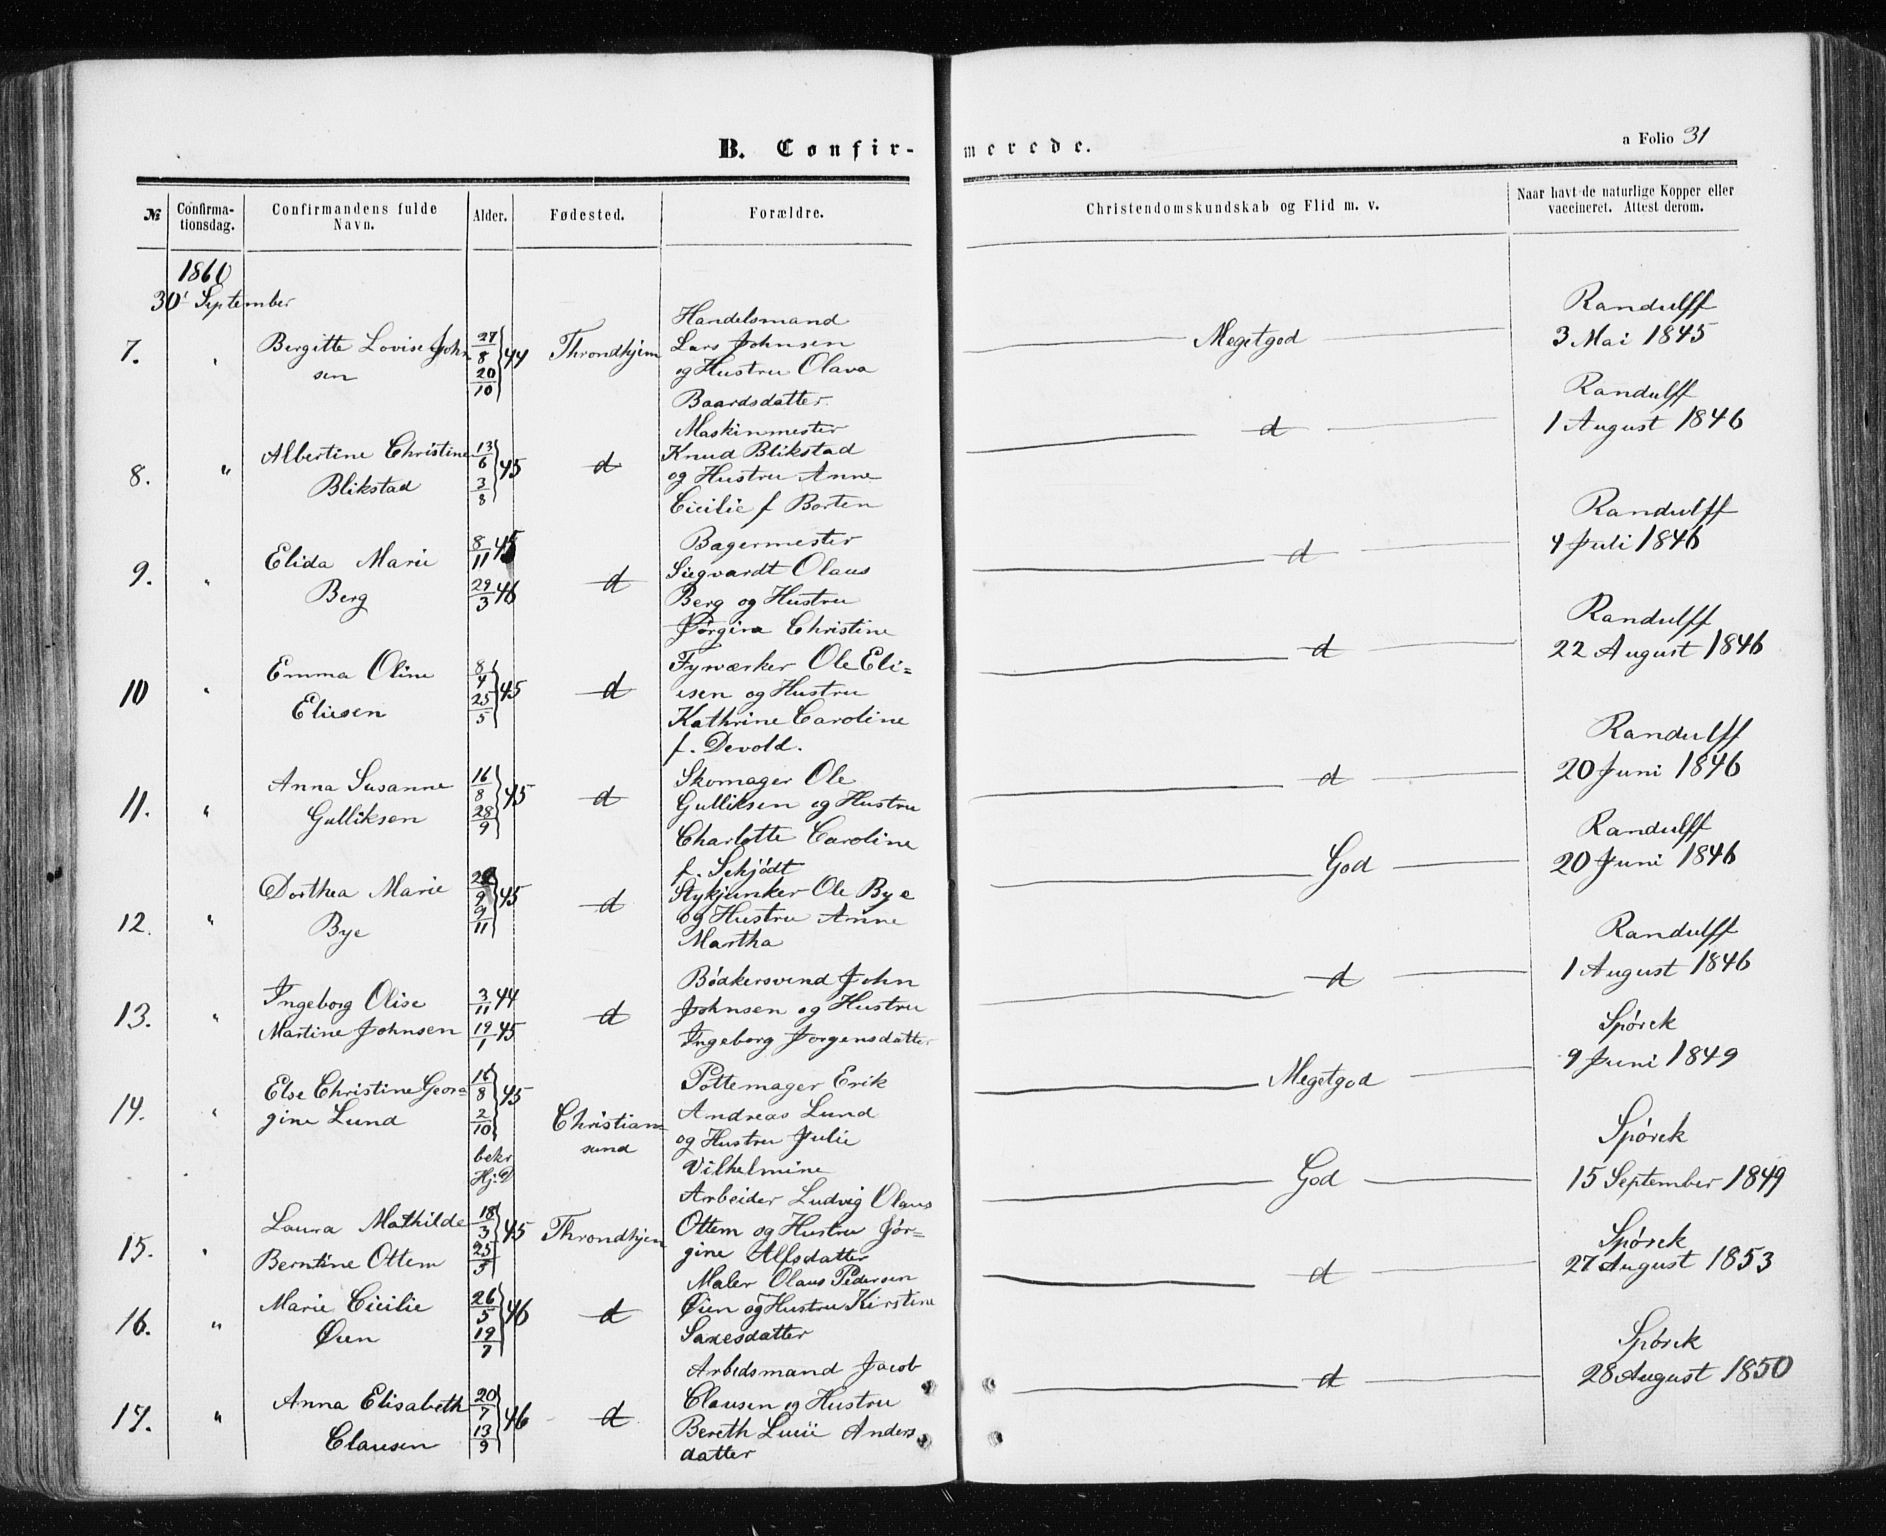 B. Confir-
merede.
a Folio 31
№
Confirma-
tionsdag.
Confirmandens fulde
Navn.
Alder.
Fødested.
Forældre.
Christendomskundskab og Flid m. v.
Naar havt de naturlige Kopper eller
vaccineret. Attest derom.
1860
30' September
7.
"
Bergitte Lovise John
sen
27/8 20/10 44
Throndhjem
Handelsmand
Lars Johnsen
og Hustru Olava
Baardsdatter.
Megetgod
Randulff
3 Mai 1845
8.
"
Albertine Christine
Blikstad
13/6 3/8 45
d
Maskinmester
Knud Blikstad
og Hustru Anne
Cicilie f Borten
d
Randulff
1 August 1846
9.
"
Elida Marie
Berg
8/11 45
29/3 46
d
Bagermester
Siegvardt Olaus
Berg og Hustru
Jørgina Christine
d
Randulff
4 Juli 1846
10
"
Emma Oline
Eliesen
8/4 25/5 45
d
Fyrværker Ole Eli=
esen og Hustru
Kathrine Caroline
f. Devold.
d
Randulff
22 August 1846
11.
"
Anna Susanne
Gulliksen
16/8 28/9 45
d
Skomager Ole
Gulliksen og Hustru
Charlotte Caroline
f. Schjødt
d
Randulff
20 Juni 1846
12.
"
Dorthea Marie
Bye
9/11 45
d
Stykjunker Ole Bye
og Hustru Anne
Martha
God
Randulff
20 Juni 1846
13.
"
Ingeborg Olise
Martine Johnsen
3/11 44
19/1 45
d
Bødkersvend John
Johnsen og Hustru
Ingeborg Jorgensdatter
d
Randulff
1 August 1846
14.
"
Else Christine Geor=
gine Lund
16/8 2/10 45
bekr
Hj: D
Christian
sund
Pottemager Erik
Andreas Lund
og Hustru Julie
Vilhelmine
Megetgod
Spørck
9 Juni 1849
15.
"
Laura Mathilde
Berntine Ottem
18/3 25/5 45
Throndhjem
Arbeider Ludvig Olaus
Ottem og Hustru Jør=
gine Alfsdatter
God
Spørck
15 September 1849
16.
"
Marie Cicilie
Øien
26/5 19/7 46
d
Maler Olaus Pedersen
Øien og Hustru Kirstine
Saxesdatter
d
Spørck
27 August 1853
17.
"
Anna Elisabeth
Clausen
20/7 13/9 46
d
Arbedsmand Jacob
Clausen og Hustru
Bereth Lucie Anders
datter
d
Spørck
28 August 1850